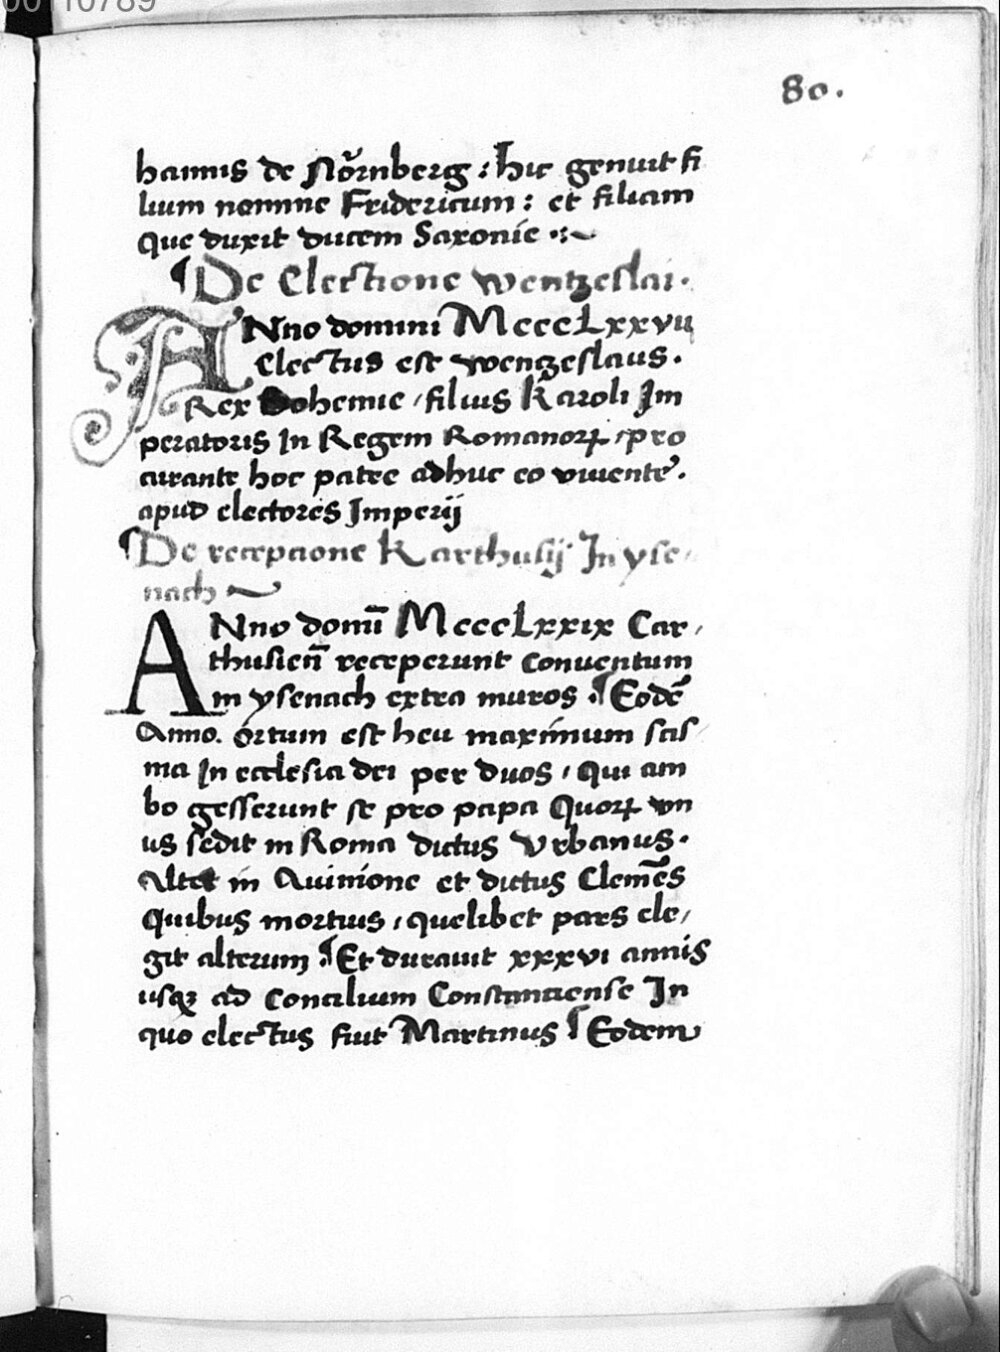 00110789
80.
hannis de Nŏrnberg : hic genuit fi
lium nomine Fridericum : et filiam
que duxit ducem Saxonie .:~
¶ De Electione wentzeslai.
ANno domini MccccLxxvii
Electus est wentzeslaus.
Rex Bohemie / filius Karoli Im
peratoris In Regem Romanoꝝ / pro
curante hoc patre adhuc eo viuente.
apud electores Imperij
¶ De recepcione Karthusij In yse-
nach ~
ANno domī MccccLxxix Car-
thusień receperunt conuentum
in ysenach extra muros . ¶ Eodē
Anno. ortum est heu maximum scis-
ma In ecclesia dei per duos / qui am
bo gesserunt se pro papa Quoꝝ vn
us sedit in Roma dictus Vrbanus.
Alter in Auinione et dictus Clemēs
Quibus mortuis / quelibet pars ele/
git alterum . ¶ Et durauit xxxvi annis
usqꝫ ad Concilium Constanciense In
quo electus fuit Martinus ¶ Eodem